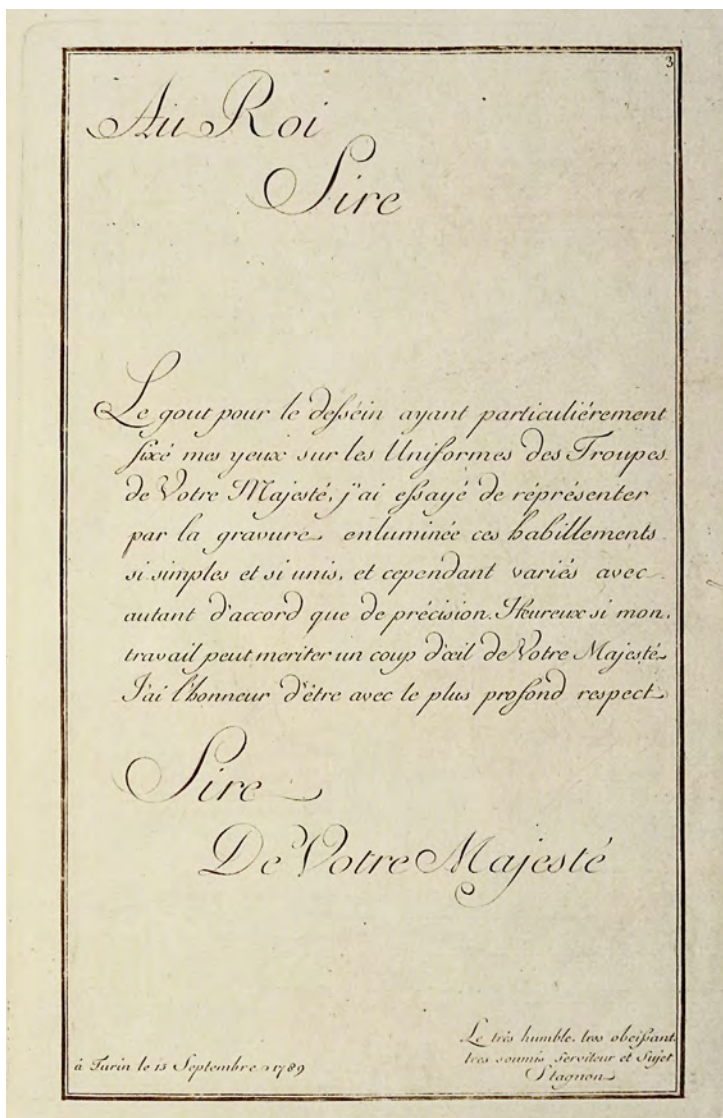 3
Au Roi
Sire
Le gout pour le desséin ayant particuliérement
fixé mes yeux sur les Uniformes des Troupes
de Votre Majesté, j'ai essayé de réprésenter
par la gravure enluminée ces habillements
si simples et si unis, et cependant variés avec
autant d'accord que de précision. Heureux si mon
travail peut meriter un coup d'œil de Votre Majesté
J'ai l'honneur d'être avec le plus profond respect
Sire
De Votre Majesté
Le très humble, tres obeissant,
tres soumis Serviteur et Sujet
Stagnon
à Turin le 15 Septembre 1789